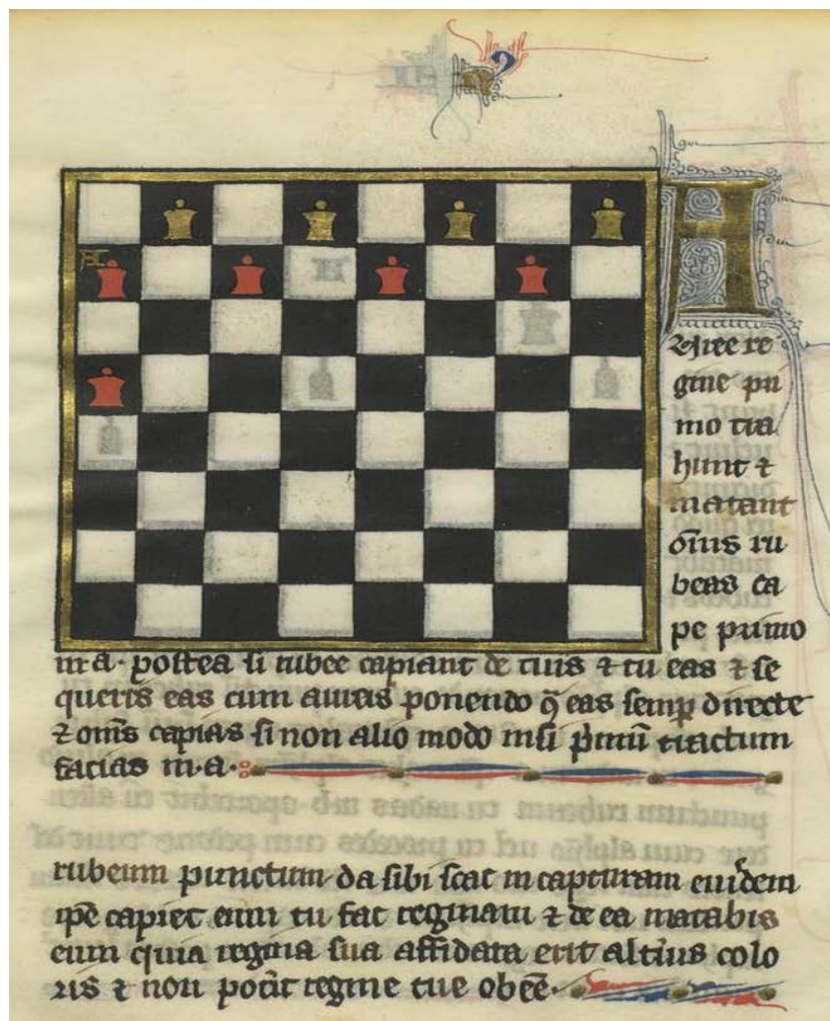 A
Auree re
gine pri
mo tra
hunt ⁊
matant
oms ru
beas ca
pe primo
in a · postea si rubee capiant de tuis ⁊ tu eas ⁊ se
queris eas cum aureis ponendo eas semp directe
⁊ oms capias si non alio modo nisi primu tractum
facias in · a ·
rubeum punctum da sibi scac in capturam euidem
ipe capiet eum tu fac reginam ⁊ de ea matabis
eum quia regina sua affidata erit altius colo
ris ⁊ non potit regine tue obee ·